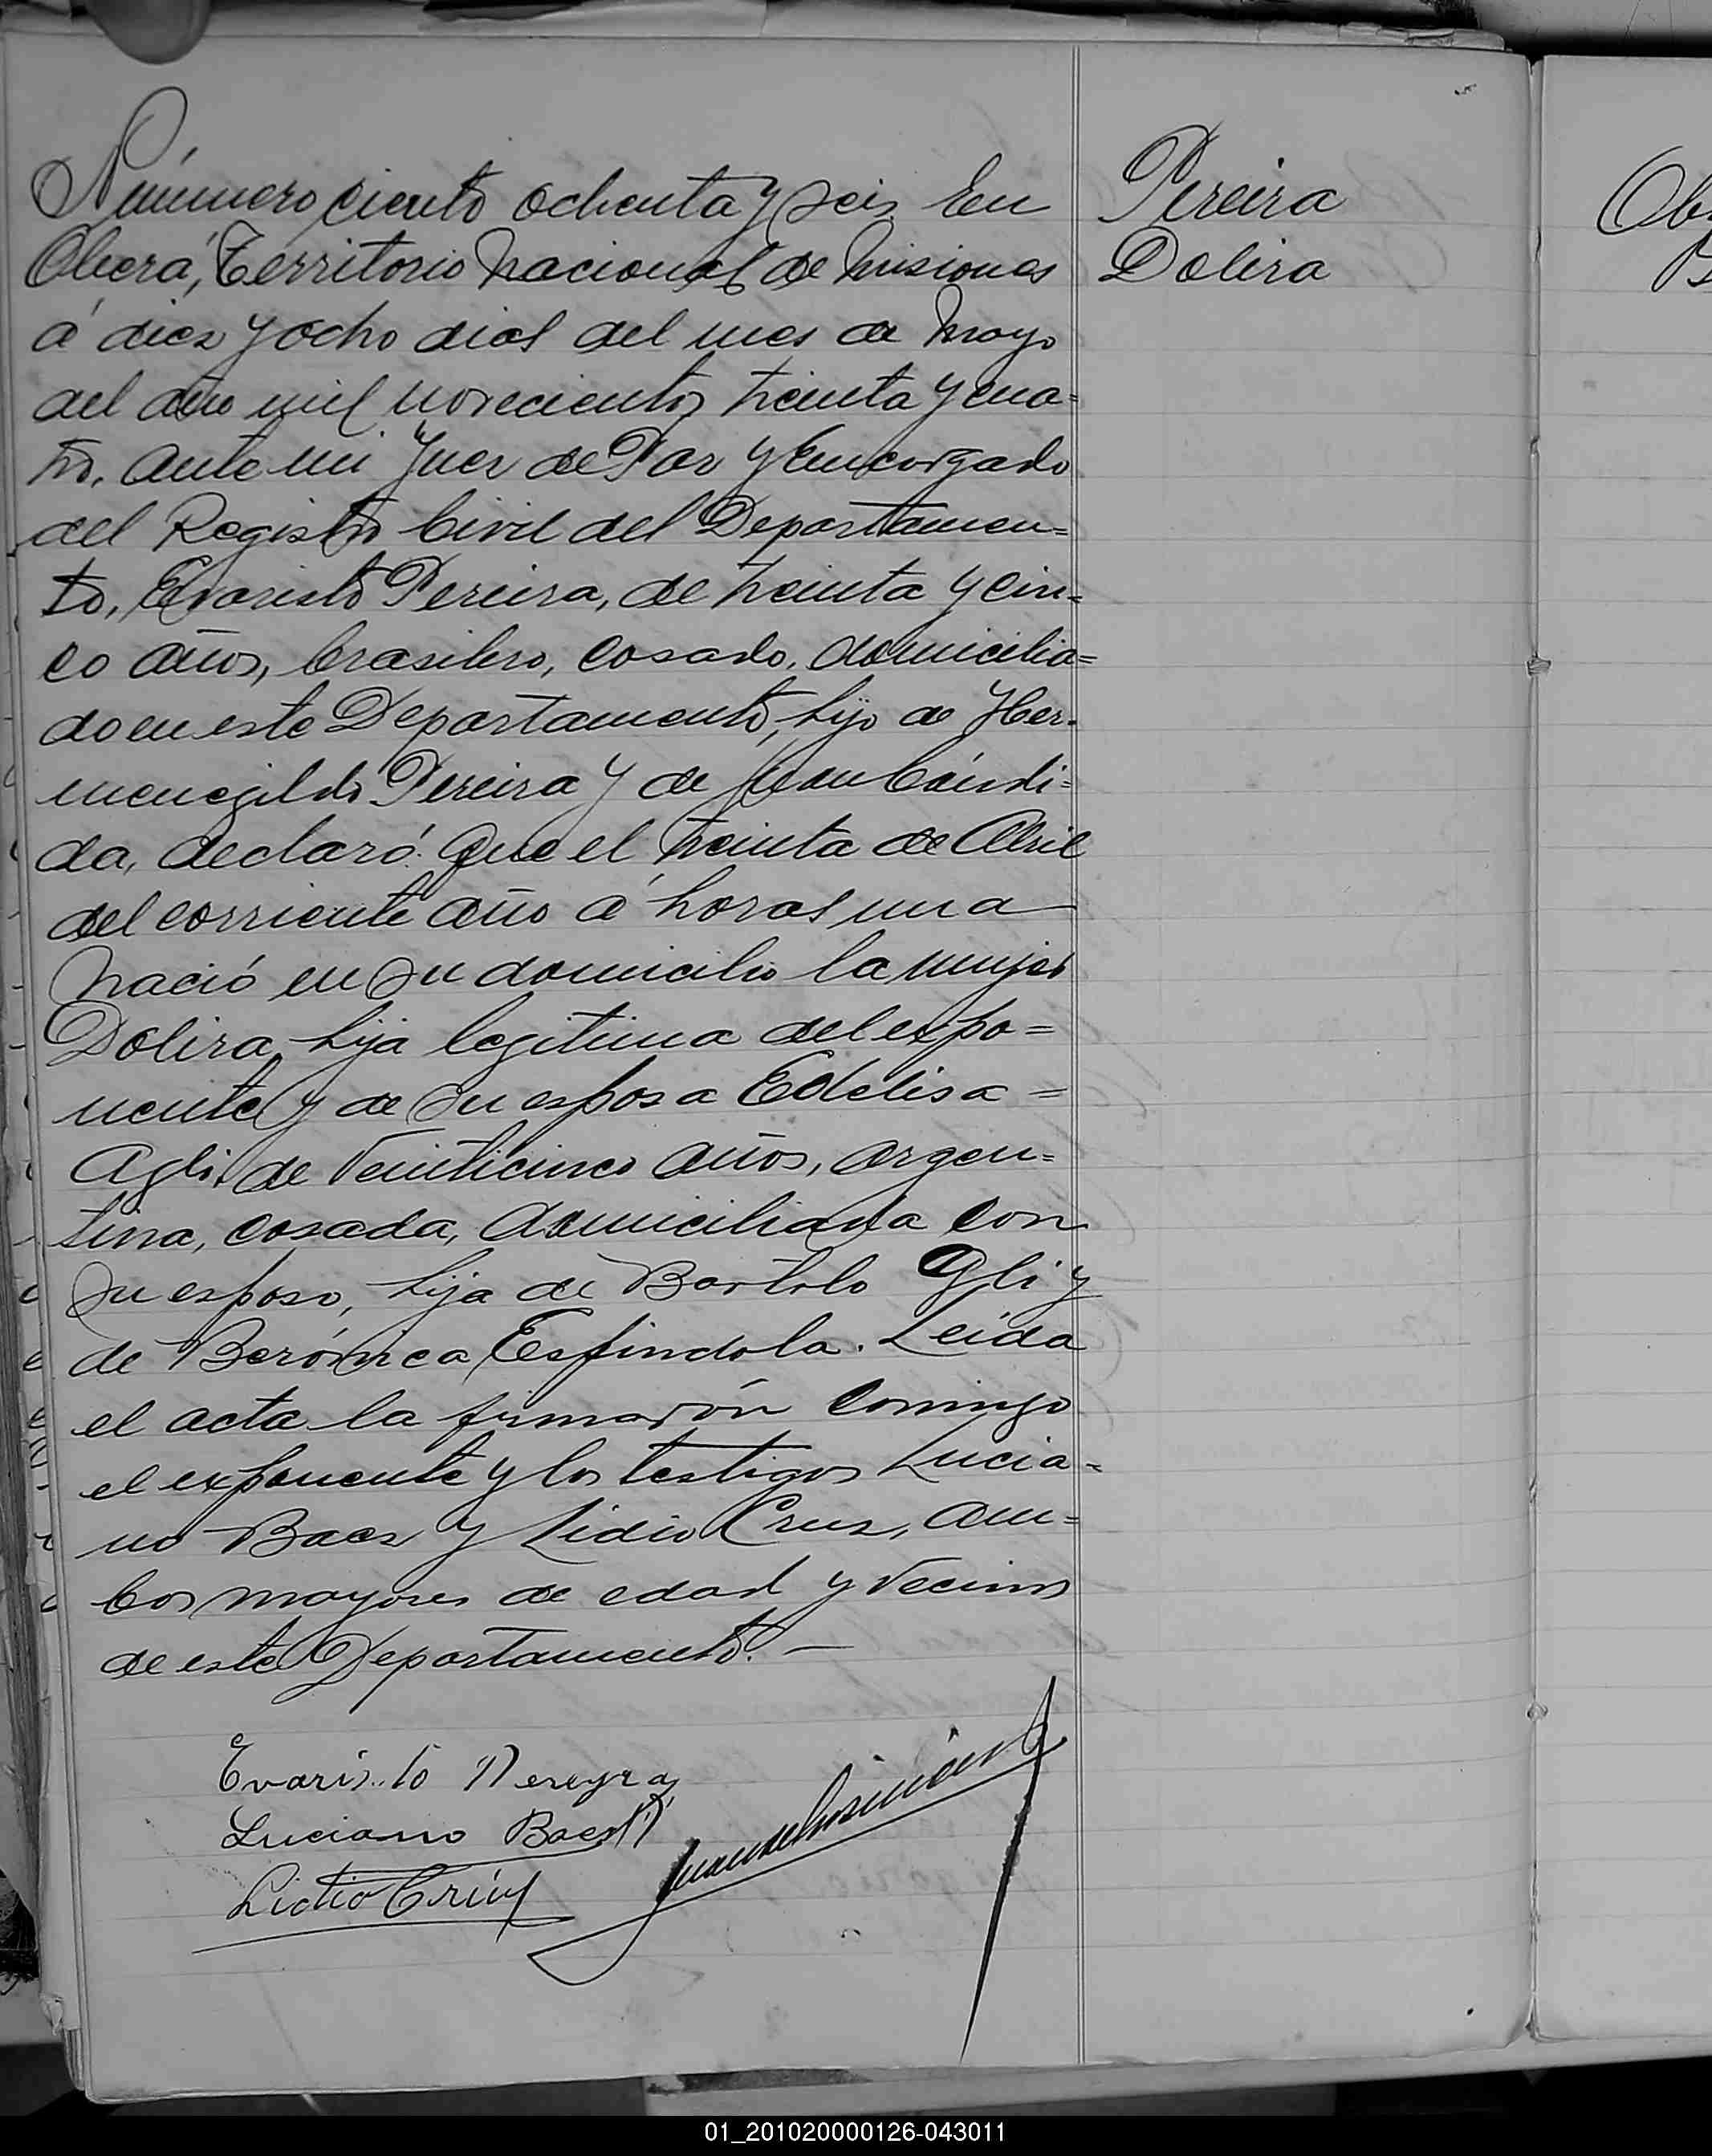 Número ciento ochenta y seis En
Oberá, Territorio Nacional de Misiones
á diez y ocho dias del mes de Mayo
del año mil novecientos treinta y cua=
tro, ante mi Juez de Paz y Encargado
del Registro Civil del Departamen=
to, Evaristo Pereira, de treinta y cin=
co años, brasilero, casado, domicilia=
do en este Departamento, hijo de Her=
menegildo Pereira y de Cándi=
da, declaró: Que el treinta de Abril
del corriente año á horas una
nació en su domicilio la mujer
Dolira, hija legitima del expo=
nente y de su esposa Edelisa =
Agli, de veinticinco años, argen=
tina, casada, domiciliada con
su esposo, hija de Bartolo Agli y
de Berónica Espindola. Leida
el acta la firmarón conmigo
el exponente y los testigos Lucia=
no Baez y Lidio Cruz, am=
bos mayores de edad y vecinos
de este Departamento. —
Evaristo Pereyra
Luciano Baez
Lidio Cruz
Pereira
Dolira
01_201020000126-043011